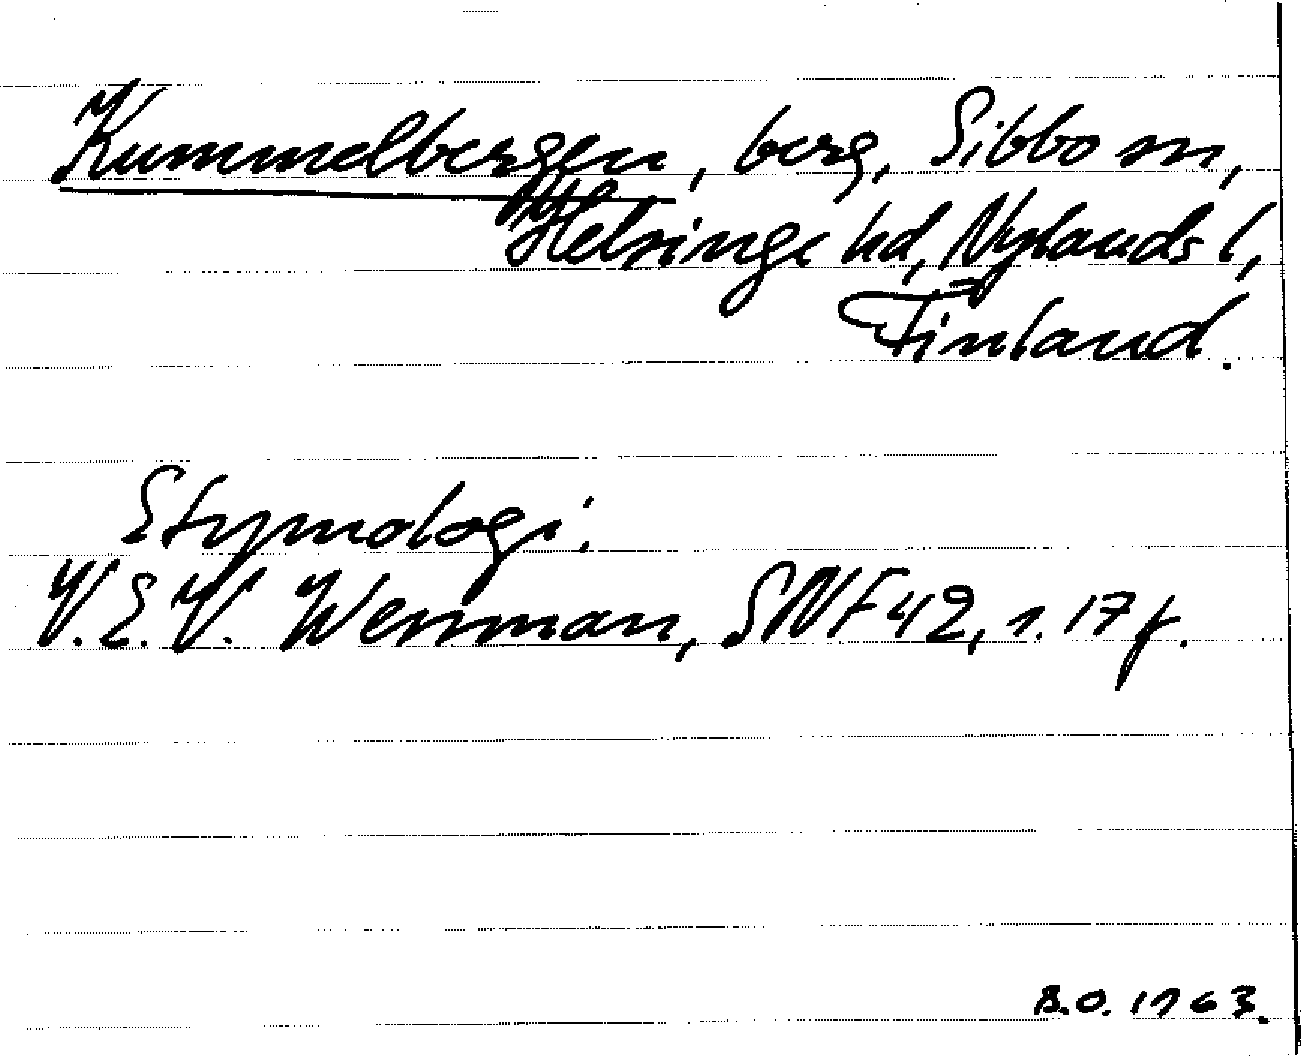 Kummelbergen, berg, Sibbo sn,
Helsinge hd, Nylands l,
Finland.
Etymologi:
V.E.V. Wessman, SNF 42, s. 17 f.
B.O. 1963.